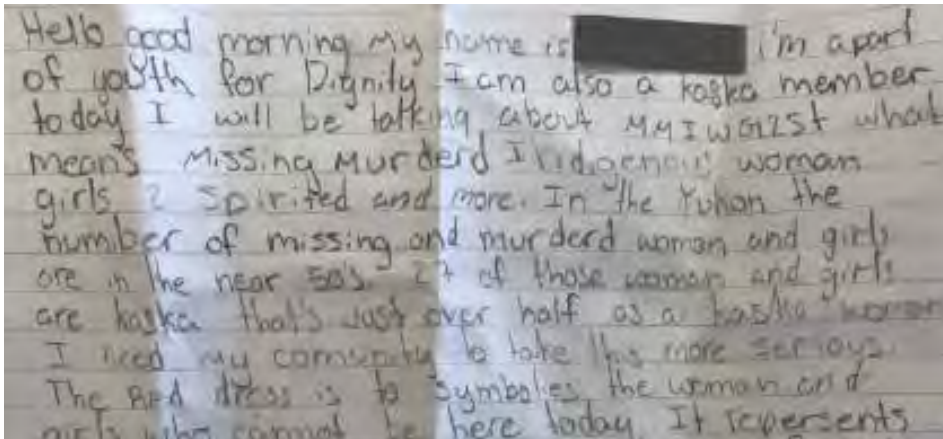 Hello good morning my name is i'm apart
of youth for Dignity I am also a kaska member
today I will be talking about MMIWG2S+ what
means Missing Murderd Indigenous woman
girls 2 Spirited and more. In the Yukon the
number of missing and murderd woman and girls
are in the near 50's. 27 of those woman and girls
are kaska that's Just over half as a kaska woman
I need my comunity to take this more serious.
The Red dress is to symbolies the woman and
girls who cannot be here today. It repersents